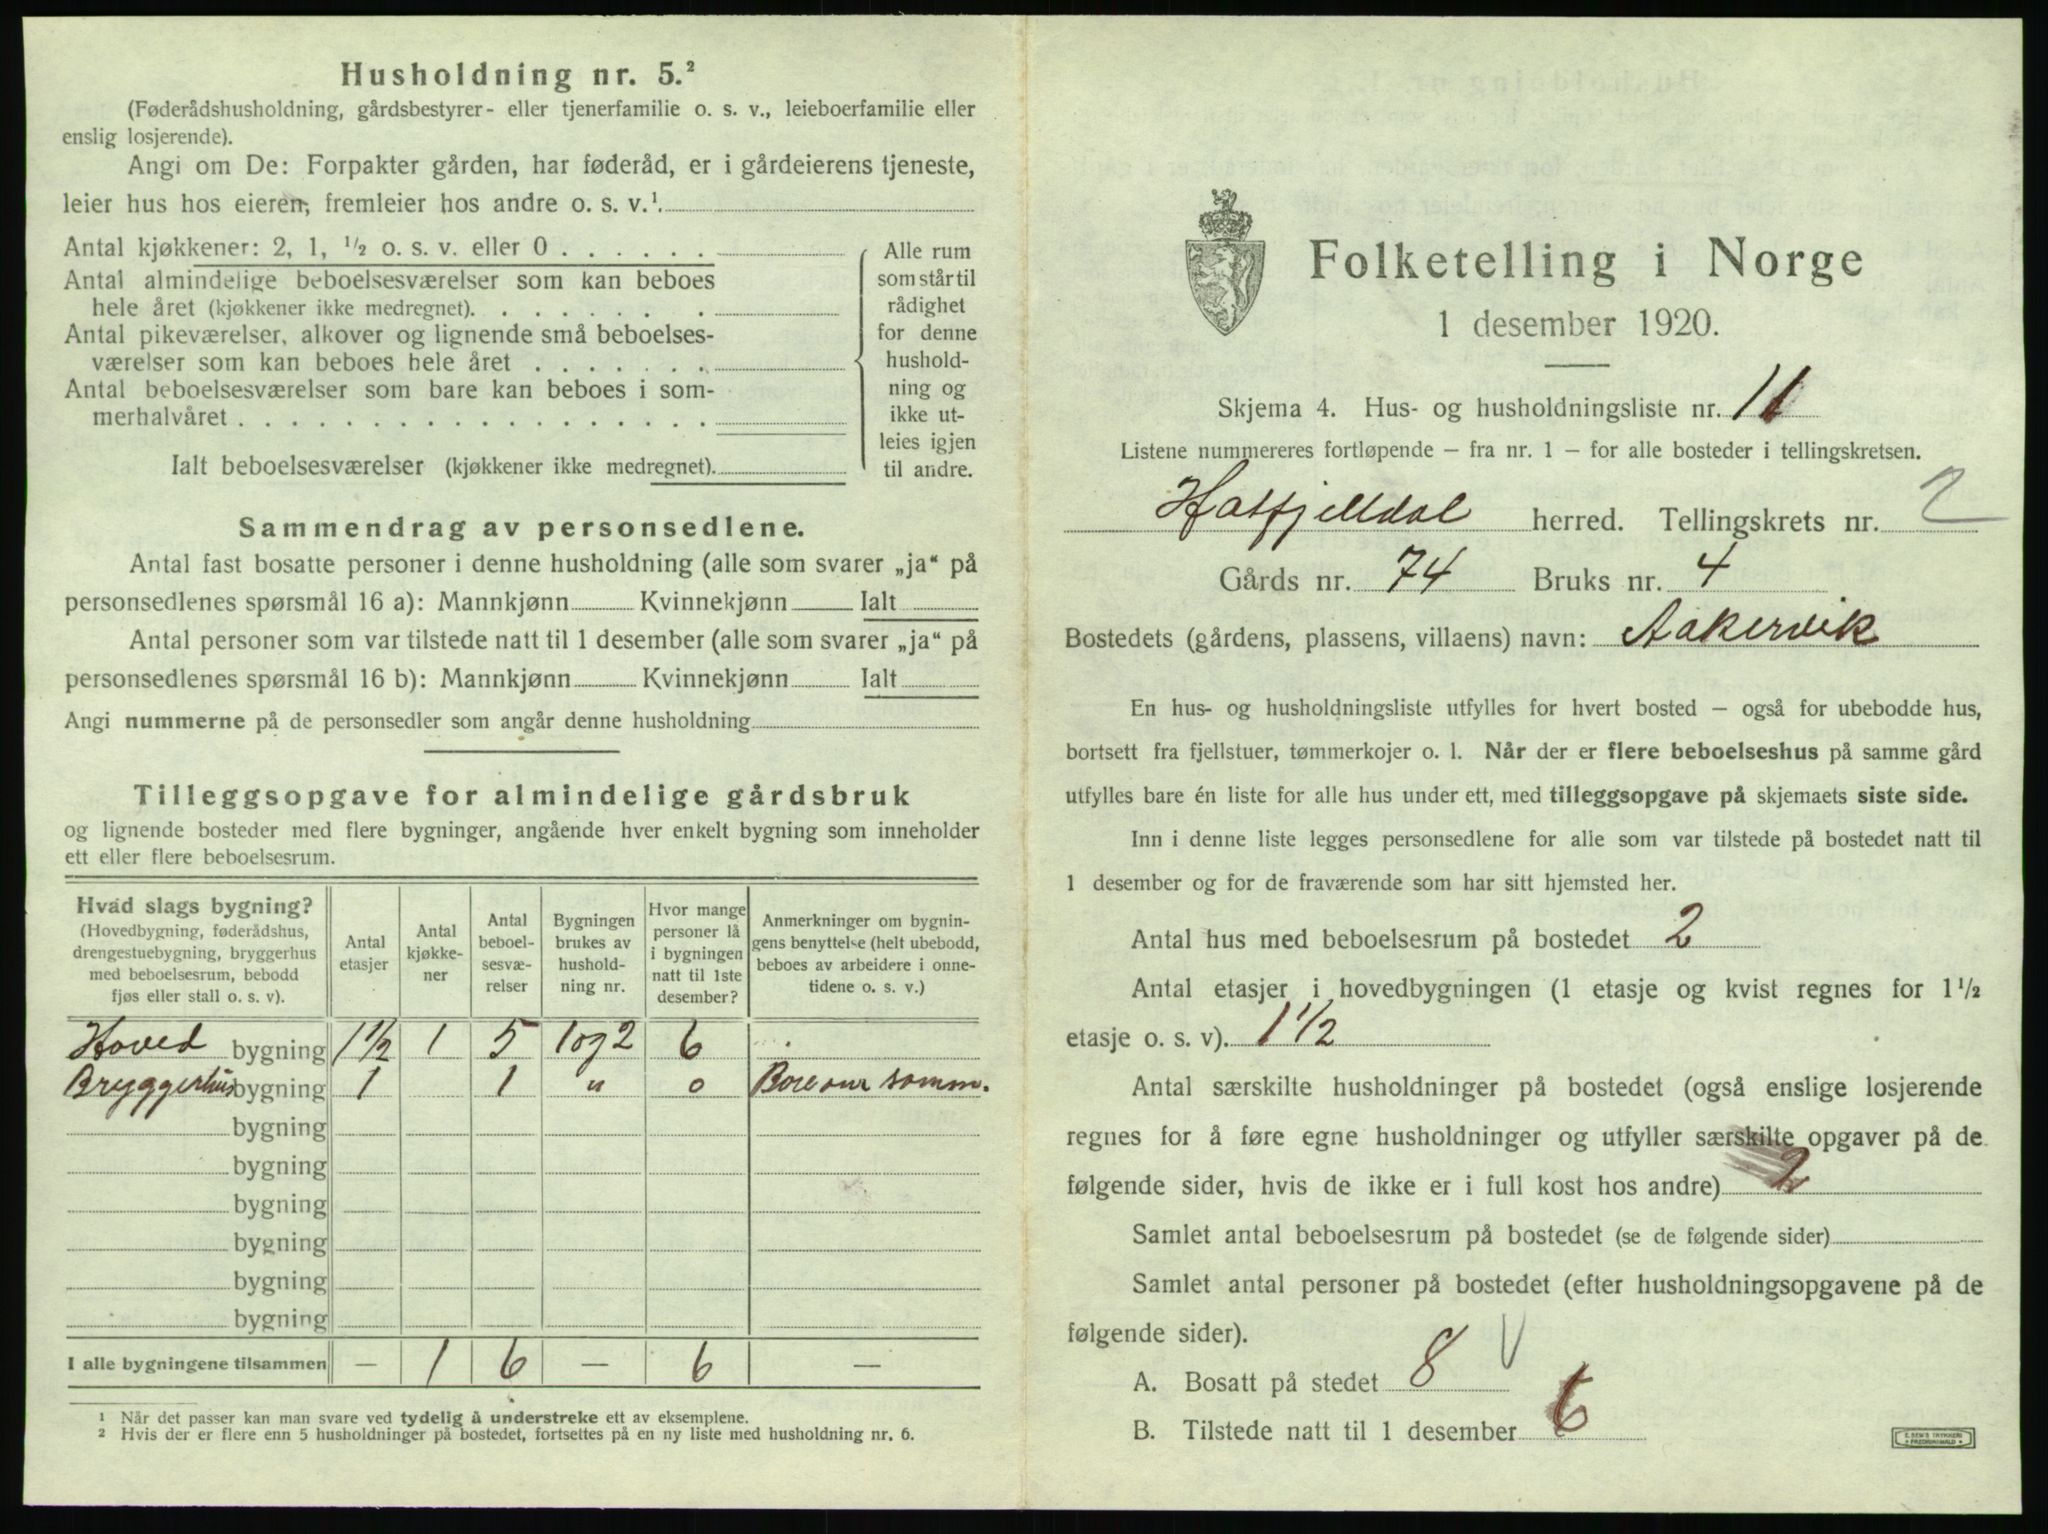 Husholdning nr. 5.²
(Føderådshusholdning, gårdsbestyrer- eller tjenerfamilie o. s. v., leieboerfamilie eller
enslig losjerende).
Angi om De: Forpakter gården, har føderåd, er i gårdeierens tjeneste,
leier hus hos eieren, fremleier hos andre o. s. v.¹
Antal kjøkkener: 2, 1, ½ o. s. v. eller 0 . . . . . .
Antal almindelige beboelsesværelser som kan beboes
hele året (kjøkkener ikke medregnet). . . . . . . .
Antal pikeværelser, alkover og lignende små beboelses-
værelser som kan beboes hele året . . . . . . .
Antal beboelsesværelser som bare kan beboes i som-
merhalvåret . . . . . . . . . . . . . . . . . .
Ialt beboelsesværelser (kjøkkener ikke medregnet).
Alle rum
som står til
rådighet
for denne
hushold-
ning og
ikke ut-
leies igjen
til andre.
Sammendrag av personsedlene.
Antal fast bosatte personer i denne husholdning (alle som svarer „ja“ på
personsedlenes spørsmål 16 a): Mannkjønn Kvinnekjønn Ialt
Antal personer som var tilstede natt til 1 desember (alle som svarer „ja“ på
personsedlenes spørsmål 16 b): Mannkjønn Kvinnekjønn Ialt
Angi nummerne på de personsedler som angår denne husholdning
Tilleggsopgave for almindelige gårdsbruk
og lignende bosteder med flere bygninger, angående hver enkelt bygning som inneholder
ett eller flere beboelsesrum.
Hvad slags bygning?
(Hovedbygning, føderådshus,
drengestuebygning, bryggerhus
med beboelsesrum, bebodd
fjøs eller stall o. s. v).
Antal
etasjer
Antal
kjøkke-
ner
Antal
beboel-
sesvæ-
relser
Bygningen
brukes av
hushold-
ning nr.
Hvor mange
personer lå
i bygningen
natt til 1ste
desember?
Anmerkninger om bygnin-
gens benyttelse (helt ubebodd,
beboes av arbeidere i onne-
tidene o. s. v.)
Hoved bygning 1½ 1 5 1 og 2 6
Bryggerhus bygning 1 1 „ 0 Bare om somm.
bygning
bygning
bygning
bygning
bygning
bygning
I alle bygningene tilsammen — 1 6 — 6 —
¹ Når det passer kan man svare ved tydelig å understreke ett av eksemplene.
² Hvis der er flere enn 5 husholdninger på bostedet, fortsettes på en ny liste med husholdning nr. 6.
Folketelling i Norge
1 desember 1920.
Skjema 4. Hus- og husholdningsliste nr. 11
Listene nummereres fortløpende – fra nr. 1 – for alle bosteder i tellingskretsen.
Hatfjelldal herred. Tellingskrets nr. 2
Gårds nr. 74 Bruks nr. 4
Bostedets (gårdens, plassens, villaens) navn: Aakervik
En hus- og husholdningsliste utfylles for hvert bosted – også for ubebodde hus,
bortsett fra fjellstuer, tømmerkojer o. l. Når der er flere beboelseshus på samme gård
utfylles bare én liste for alle hus under ett, med tilleggsopgave på skjemaets siste side.
Inn i denne liste legges personsedlene for alle som var tilstede på bostedet natt til
1 desember og for de fraværende som har sitt hjemsted her.
Antal hus med beboelsesrum på bostedet 2
Antal etasjer i hovedbygningen (1 etasje og kvist regnes for 1½
etasje o. s. v). 1½
Antal særskilte husholdninger på bostedet (også enslige losjerende
regnes for å føre egne husholdninger og utfyller særskilte opgaver på de
følgende sider, hvis de ikke er i full kost hos andre) 2
Samlet antal beboelsesrum på bostedet (se de følgende sider)
Samlet antal personer på bostedet (efter husholdningsopgavene på de
følgende sider).
A. Bosatt på stedet 8 V
B. Tilstede natt til 1 desember 6